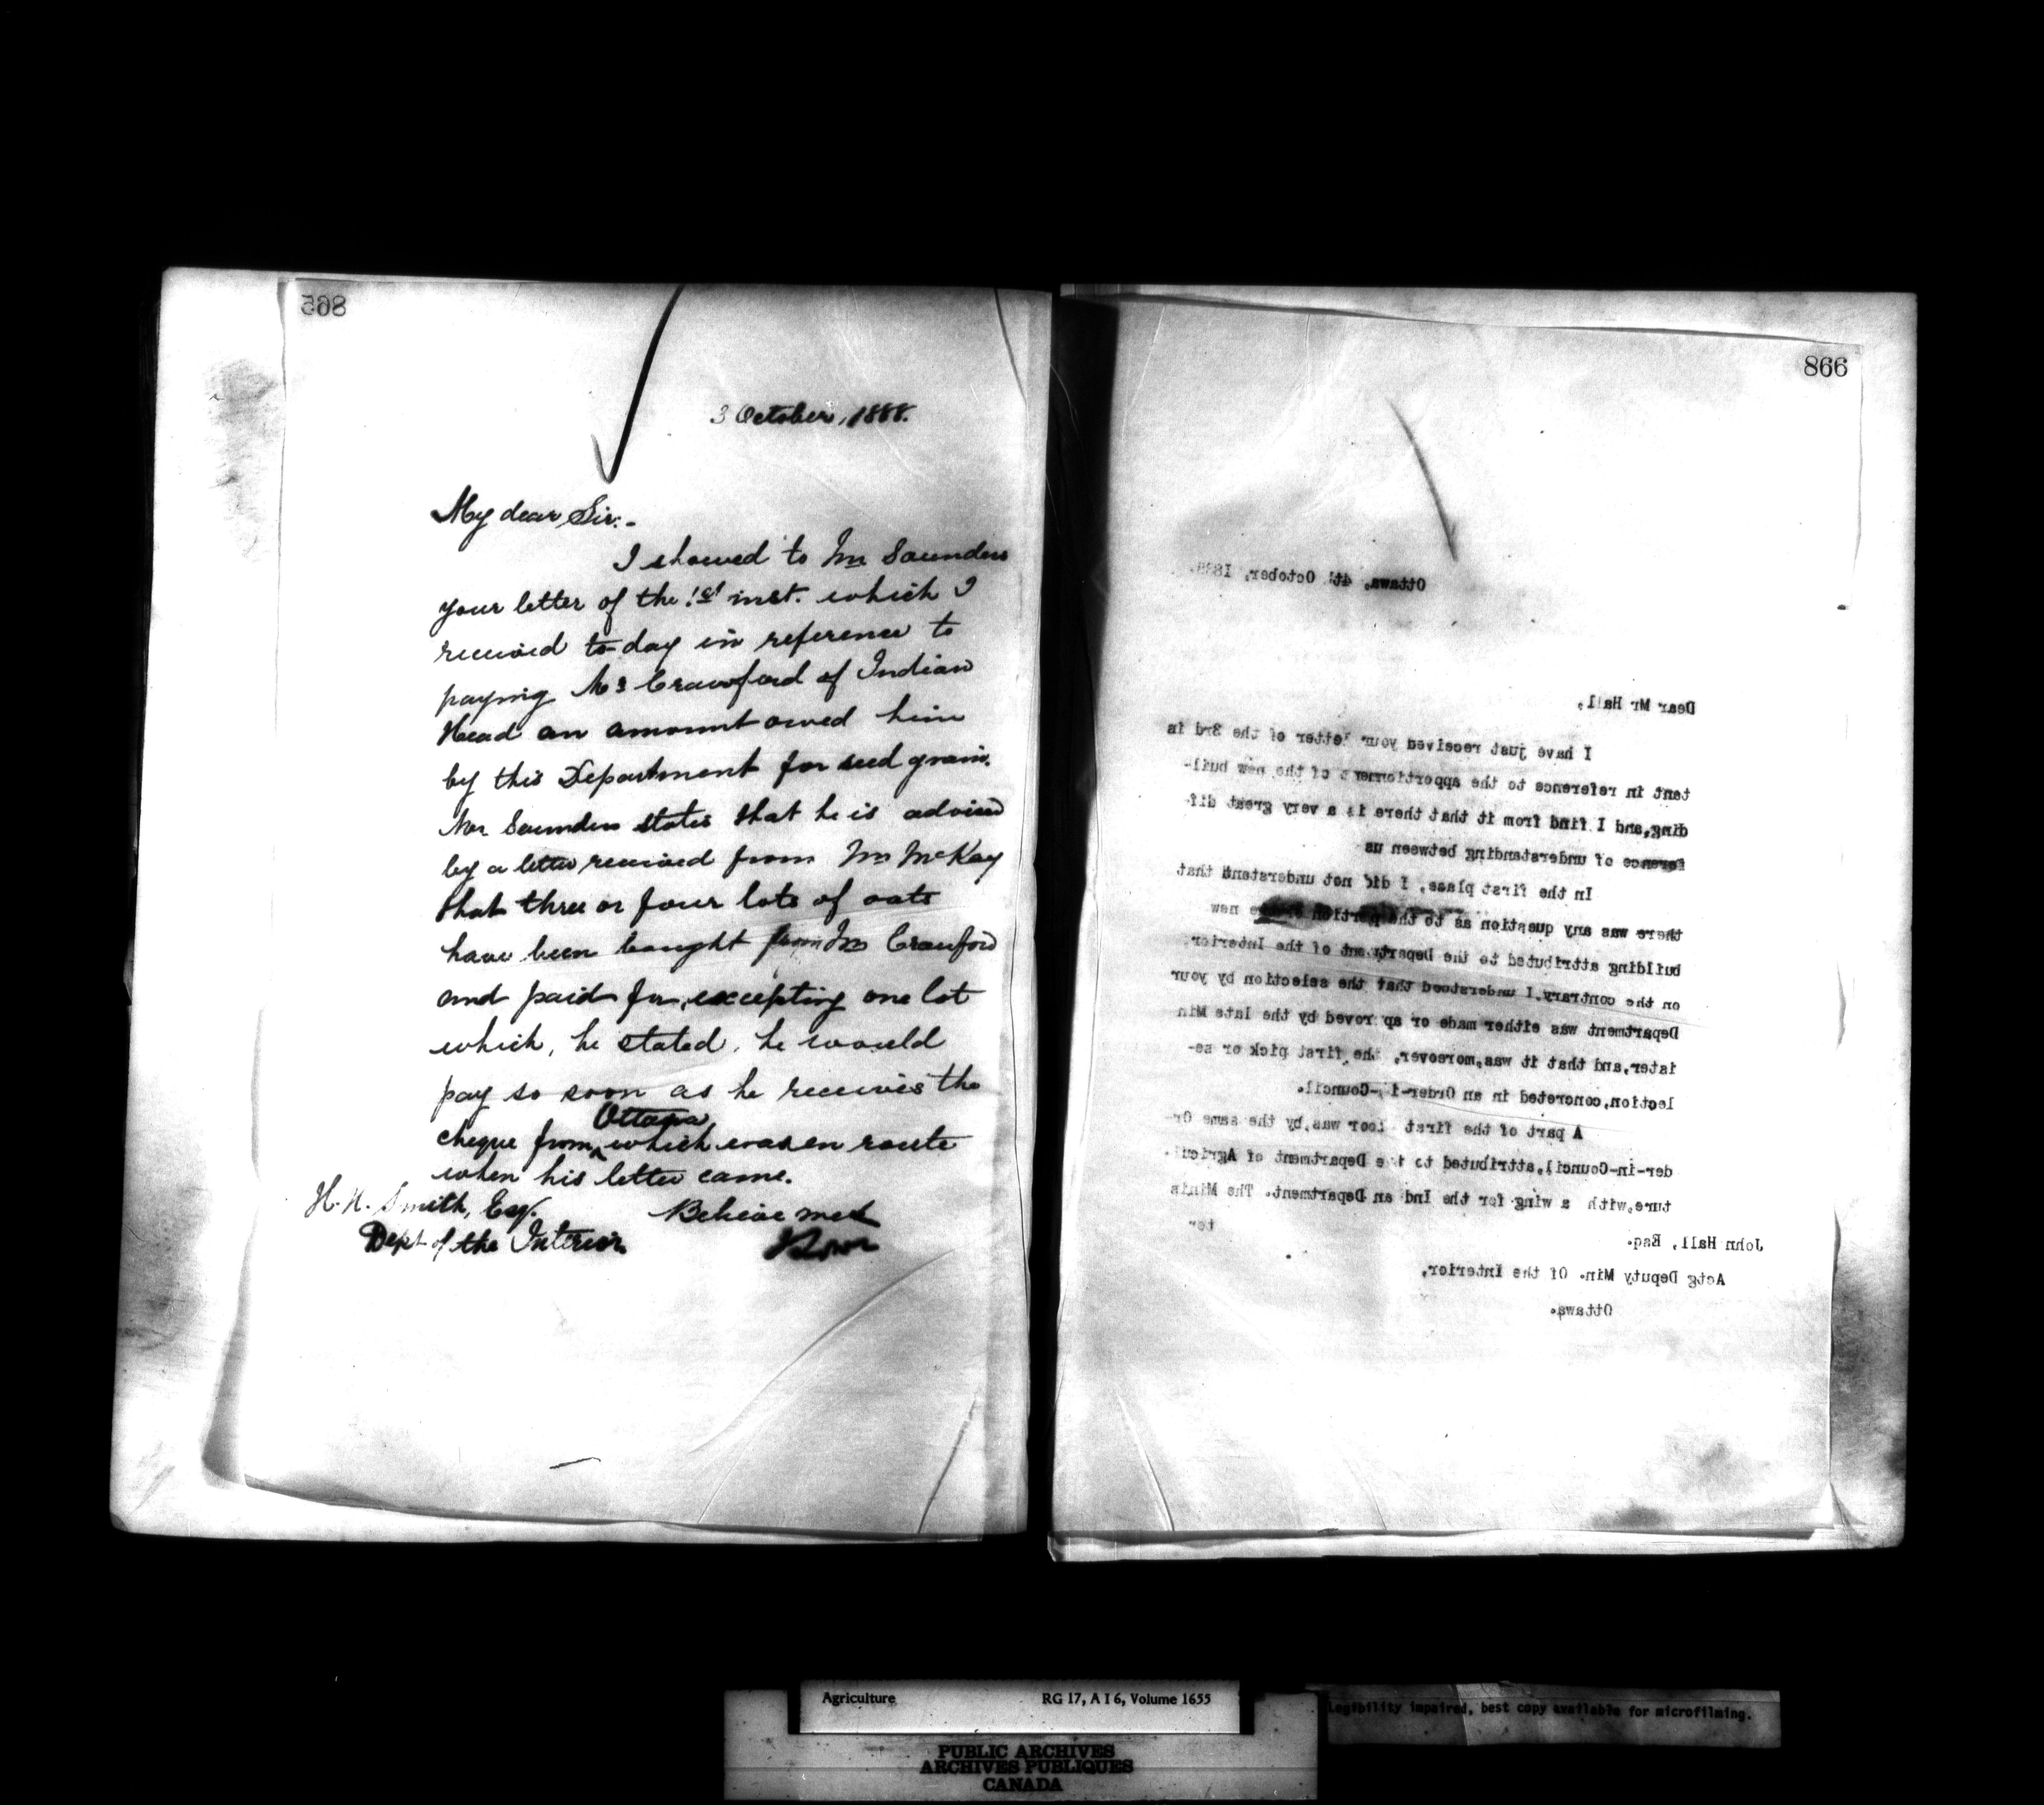 865
3 October, 1888.
My dear Sir:-
I showed to Mr Saunders
your letter of the 1st inst. which I
received to-day in reference to
paying Mr Crawford of Indian
Head an amount owed him
by this Department for seed grain.
Mr Saunders states that he is advised
by a letter received from Mr McKay
that three or four lots of oats
have been bought from Mr Crawford
and paid for, excepting one lot
which, he stated, he would
pay so soon as he receives the
Ottawa
cheque from which was en route
when his letter came.
H. H. Smith, Esq.
Believe me
Dept of the Interior
J Lowe
866
Ottawa, 4th October, 1888.
Dear Mr Hall,
I have just received your letter of the 3rd is
tant in reference to the apportionment of the new buil-
ding, and I find from it that there is a very great dif-
ference of understanding between us
In the first place, I did not understand that
there was any question as to the portion new
building attributed to the Department of the Interior;
on the contrary, I understood that the selection by your
Department was either made or approved by the late Min
ister, and that it was, moreover, the first pick or se-
lection, concreted in an Order-in-Council.
A part of the first floor was, by the same Or-
der-in-Council, attributed to the Department of Agricul-
ture, with a wing for the Indian Department. The Minis
ter
John Hall, Esq.
Actg Deputy Min. Of the Interior,
Ottawa.
Agriculture RG 17, A I 6, Volume 1655
Legibility impaired, best copy available for microfilming.
PUBLIC ARCHIVES
ARCHIVES PUBLIQUES
CANADA